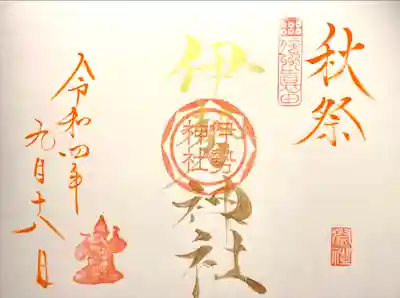 秋祭
伊勢神社
伊勢
神社
令和四年
九月十八日